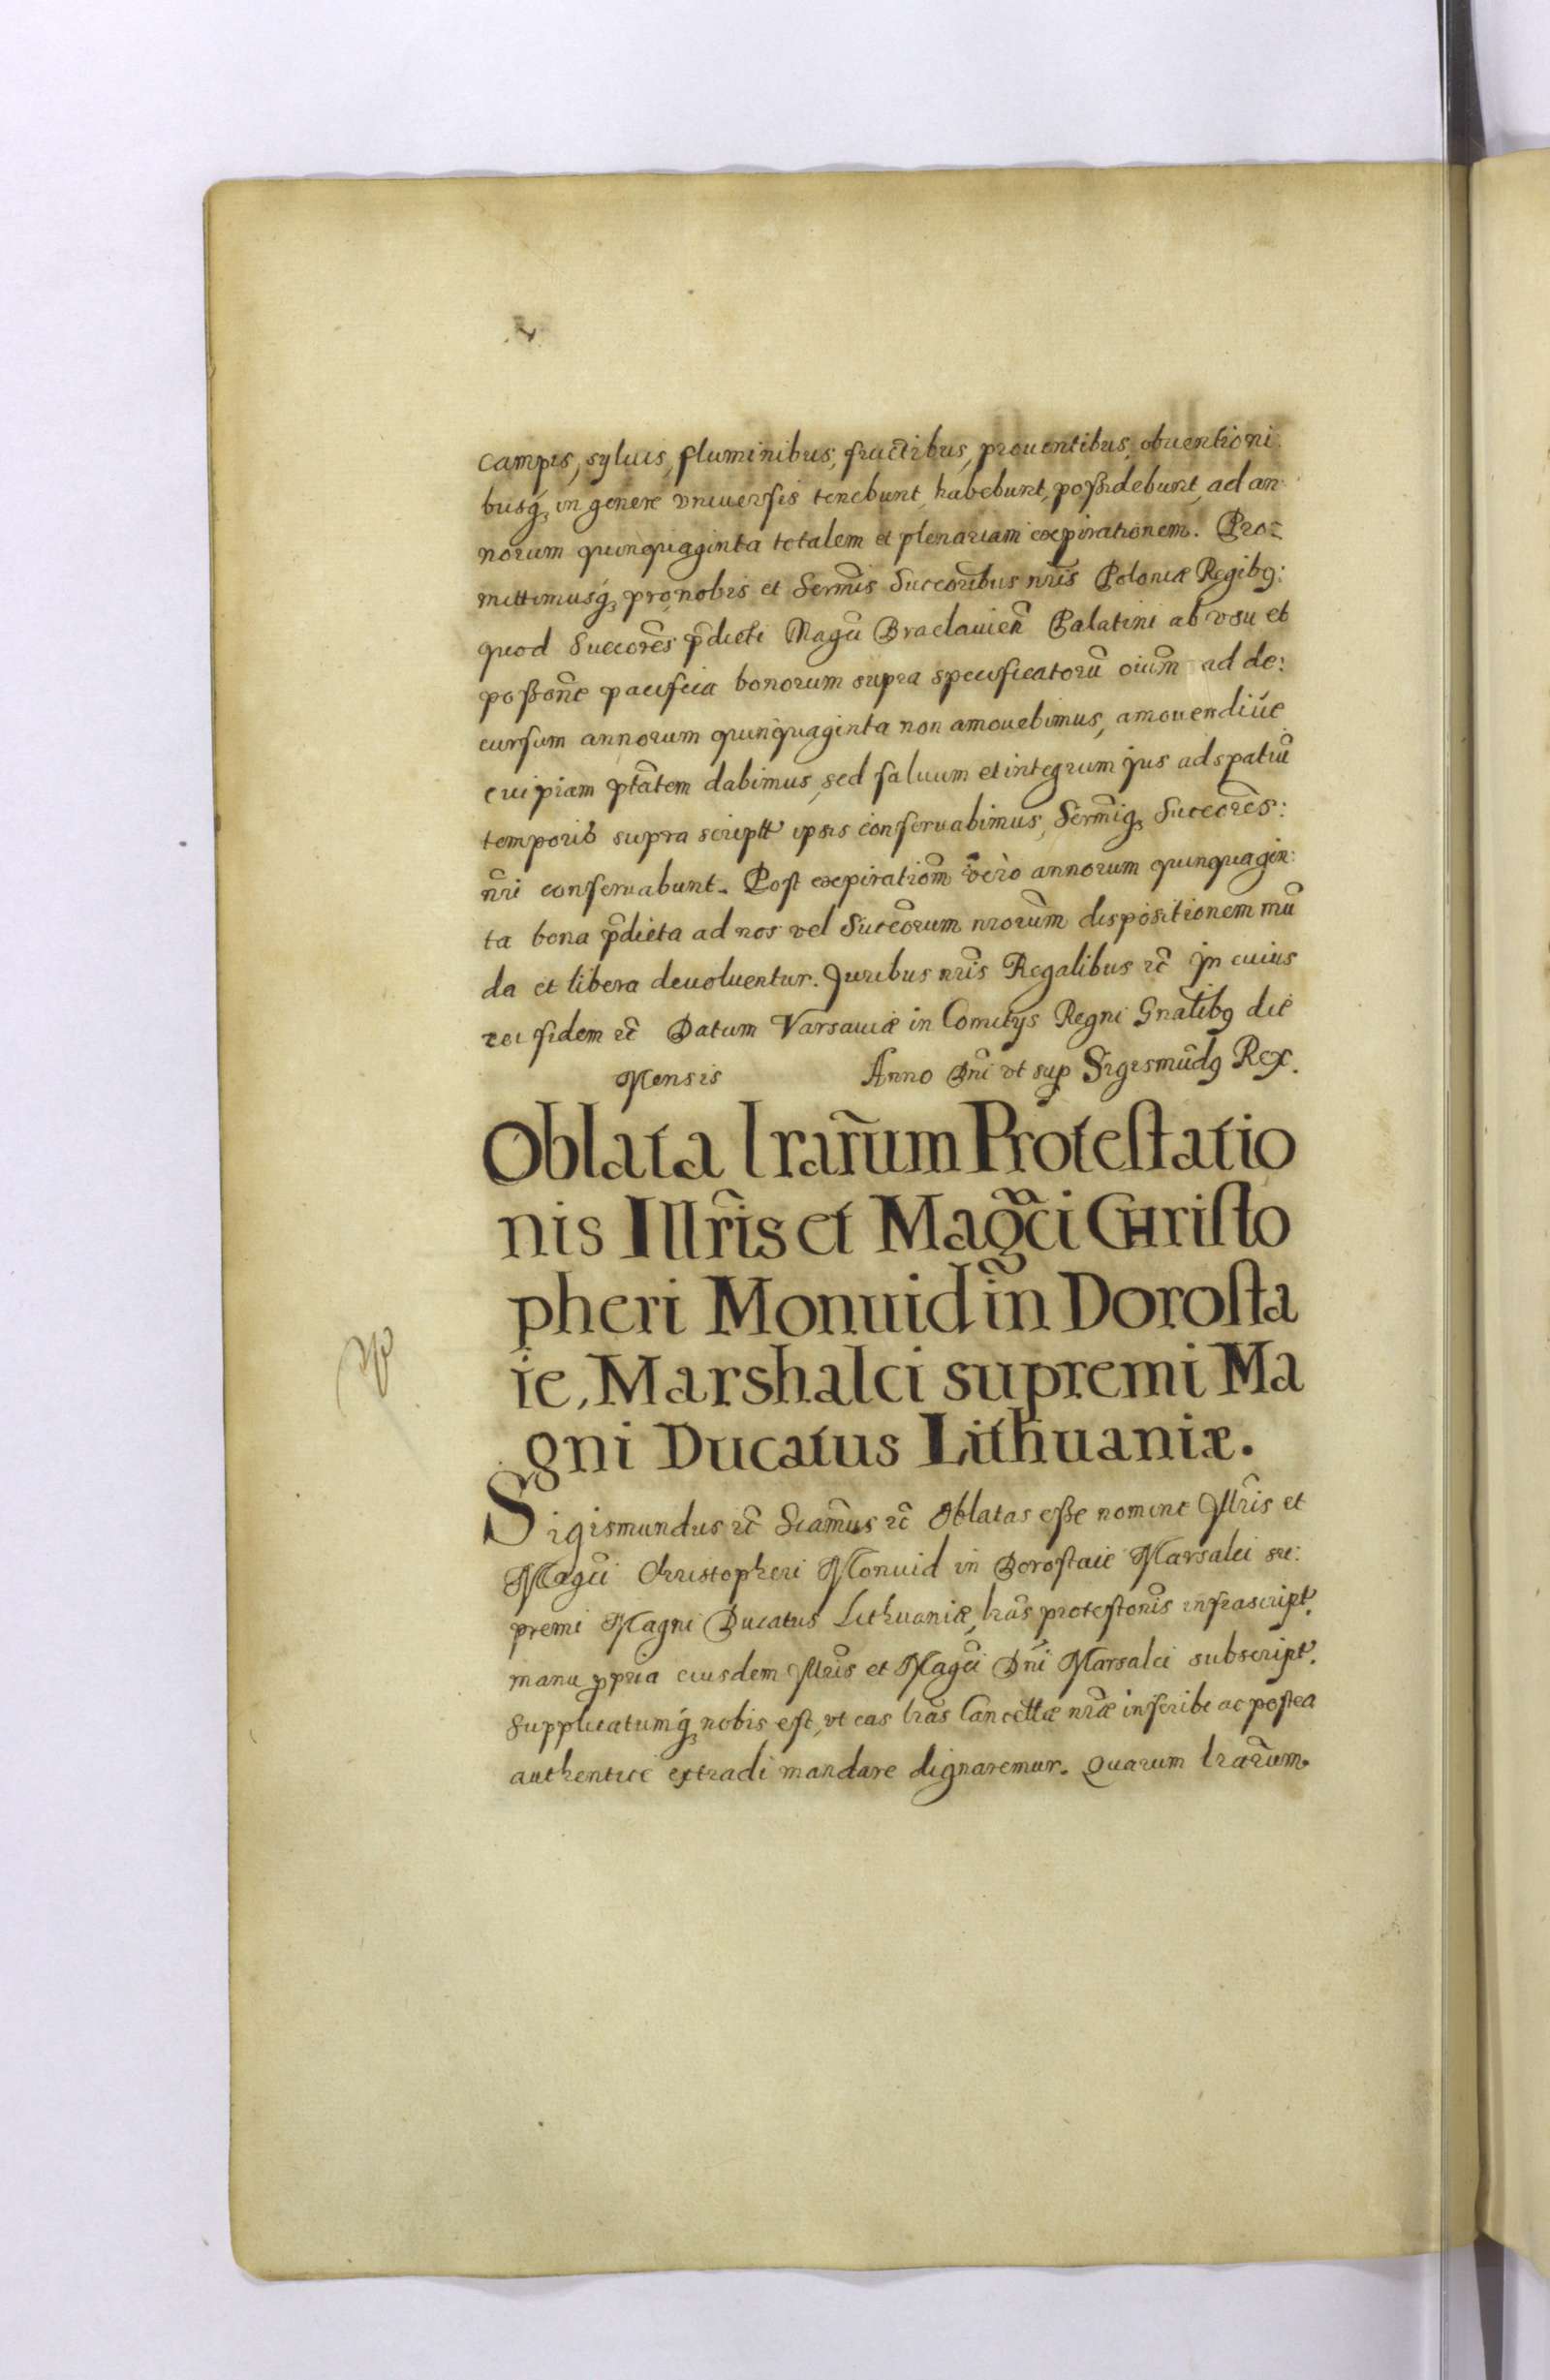 campis, syluis, fluminibus, fructibus, prouentibus, obuentioni:
busq́ꝫ in genere vniuersis tenebunt, habebunt, poßidebunt, ad an:
norum quinquaginta totalem et plenariam expirationem. Pro=
mittimusq́ꝫ pro nobis et Serm̃is Succoribus nr̃is Poloniæ Regibꝯ:
quod Succorẽs p̃dicti Magci Braclauien̄ Palatini ab vsu et
poßone pacifica bonorum supra specificatorũ oium̃ ad de:
cursum annorum quinquaginta non amouebimus, amouendiúe
cuipiam ptãtem dabimus, sed saluum et integrum jus ad spatiũ
temporis supra scriptt ipsis conseruabimus, Serm̃iqꝫ Succorẽs:
nr̃i conseruabunt. Post expirationm̃ verò annorum quinquagin:
ta bona p̃dicta ad nos vel Succorum nrorum̃ dispositionem mũ
da et libera deuoluentur. Juribus nr̃is Regalibus ꝛc̃ Jn cuius
rei fidem ꝛc̃ Datum Varsauiæ in Comitijs Regni Gnãlibꝯ die
Mensis Anno Dni vt sup Sigismũdꝯ Rex.
Oblata lrar̃um Protestatio
nis Illr̃is et Magc̃i Christo
pheri Monuid in Dorosta
ie, Marshalci supremi Ma
gni Ducatus Lithuaniæ.
Sigismundus ꝛc̃ Scam̃us ꝛc̃ Oblatas eße nomine Jllr̃is et
Magc̃i Christopheri Monuid in Dorostaie Marsalci su:
premi Magni Ducatus Lithuaniæ, lrãs protestonis infrascript.
manu ꝓpria eiusdem Jllr̃is et Magc̃i Dñi Marsalci subscript.
Supplicatumq́ꝫ nobis est, vt eas lrãs Cancellæ nr̃æ inscribi ac postea
authenticè extradi mandare dignaremur. Quarum lrarũm